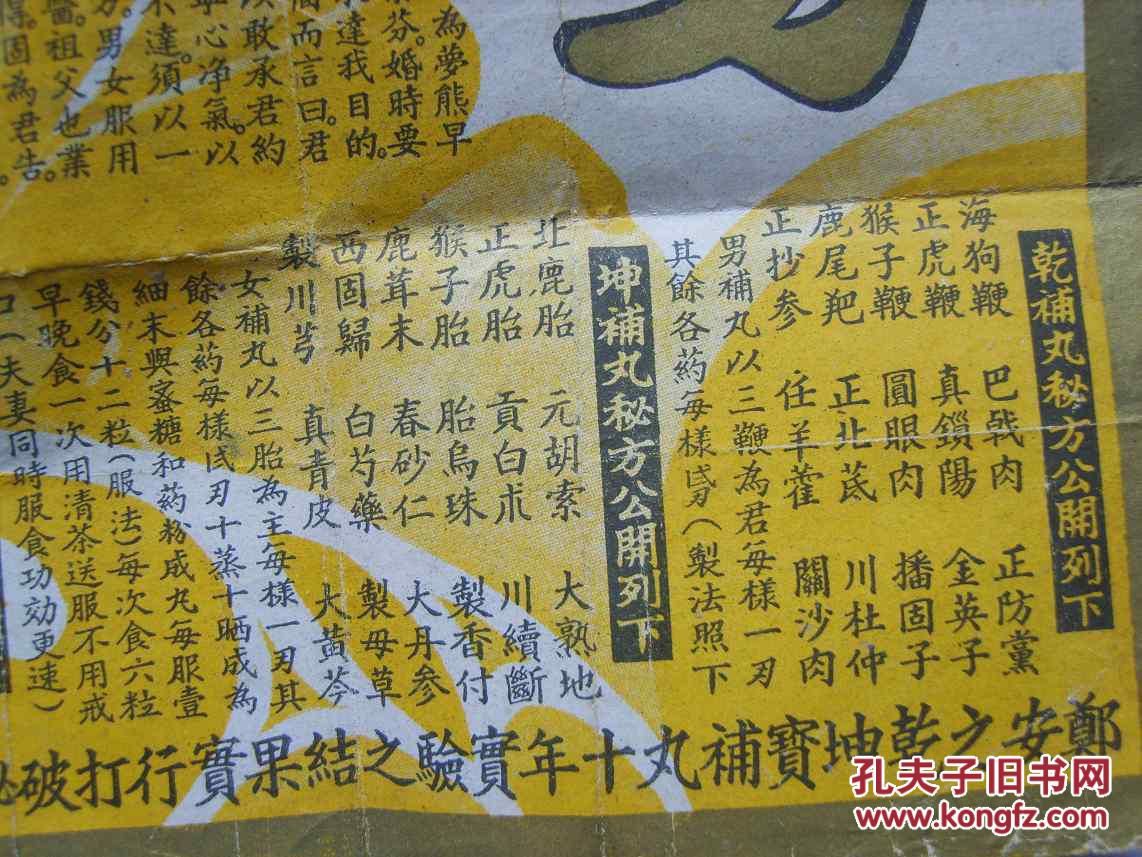 乾補丸秘方公開列下
海狗鞭　巴戟肉　正防黨
正虎鞭　真鎖陽　金英子
猴子鞭　圓眼肉　播固子
鹿尾羓　正北茋　川杜仲
正抄参　任羊藿　關沙肉
男補丸以三鞭為君每樣一刃
其餘各葯每樣　刃（製法照下
坤補丸秘方公開列下
北鹿胎　元胡索　大熟地
正虎胎　貢白朮　川續斷
猴子胎　胎烏珠　製香付
鹿茸末　春砂仁　大丹参
西固歸　白芍藥　製母草
製川芎　真青皮　大黄芩
女補丸以三胎為主每樣一刃其
餘各葯每樣　刃十蒸十晒成為
細末與蜜糖和葯粉成丸每服壹
錢分十二粒（服法）每次食六粒
早晚食一次用清茶送服不用戒
口（夫妻同時服食功効更速）
為夢熊早
芬。婚時要
達我目的。
而言曰。君
敢承君約
心净氣。以
不達。須以一
男女服用
醫。祖父也業
得。固為君告。
鄭安之乾坤寳補丸十年實驗之结果實行打破
孔夫子旧书网
www.kongfz.com